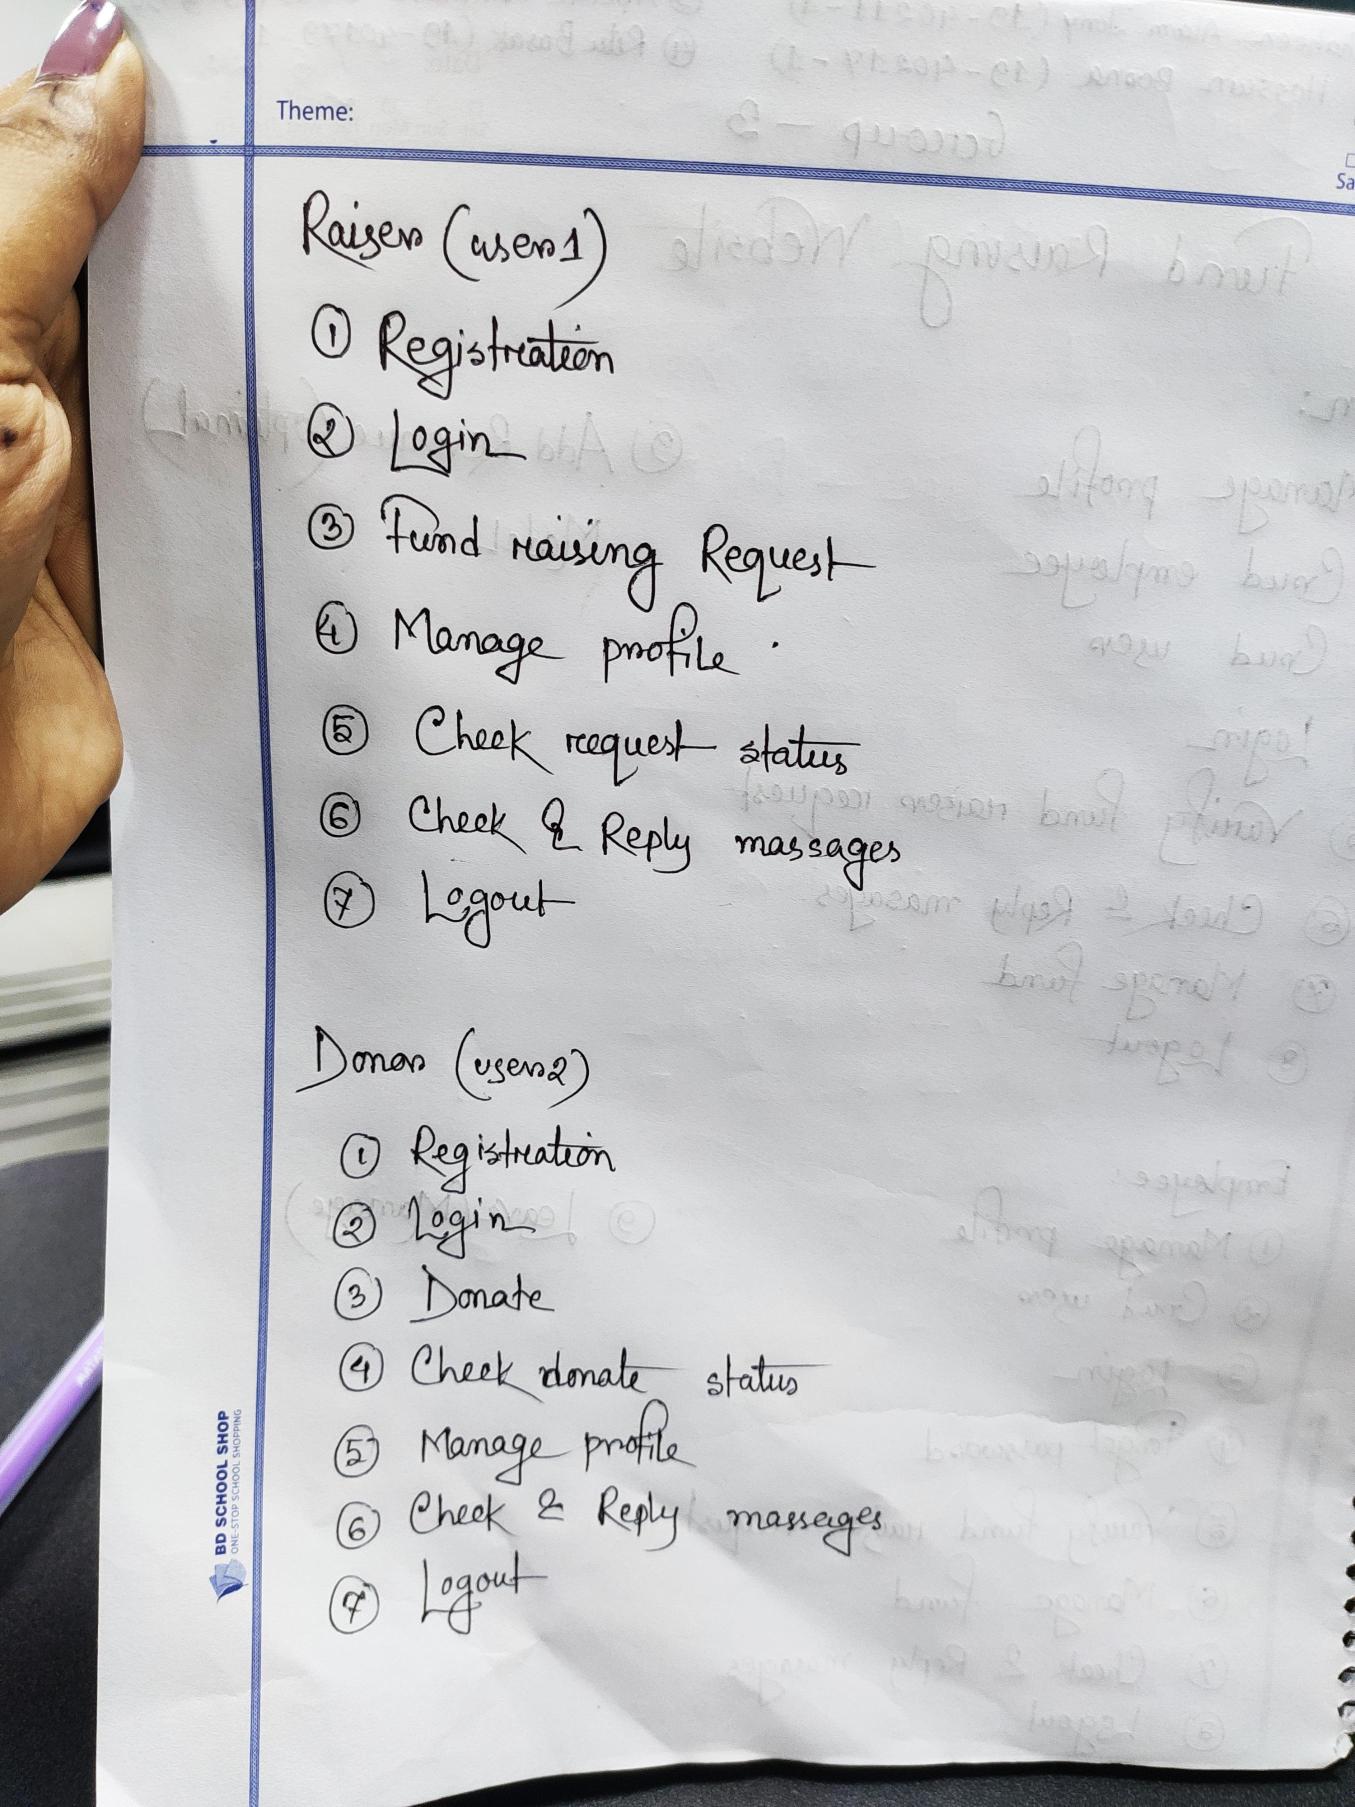 Theme:
Sa
Raiser (user1)
① Registration
② Login
③ Fund raising Request
④ Manage profile
⑤ Check request status
⑥ Check & Reply massages
⑦ Logout
Donor (user2)
① Registration
② Login
③ Donate
④ Check donate status
⑤ Manage profile
⑥ Check & Reply masseges
⑦ Logout
BD SCHOOL SHOP
ONE-STOP SCHOOL SHOPPING